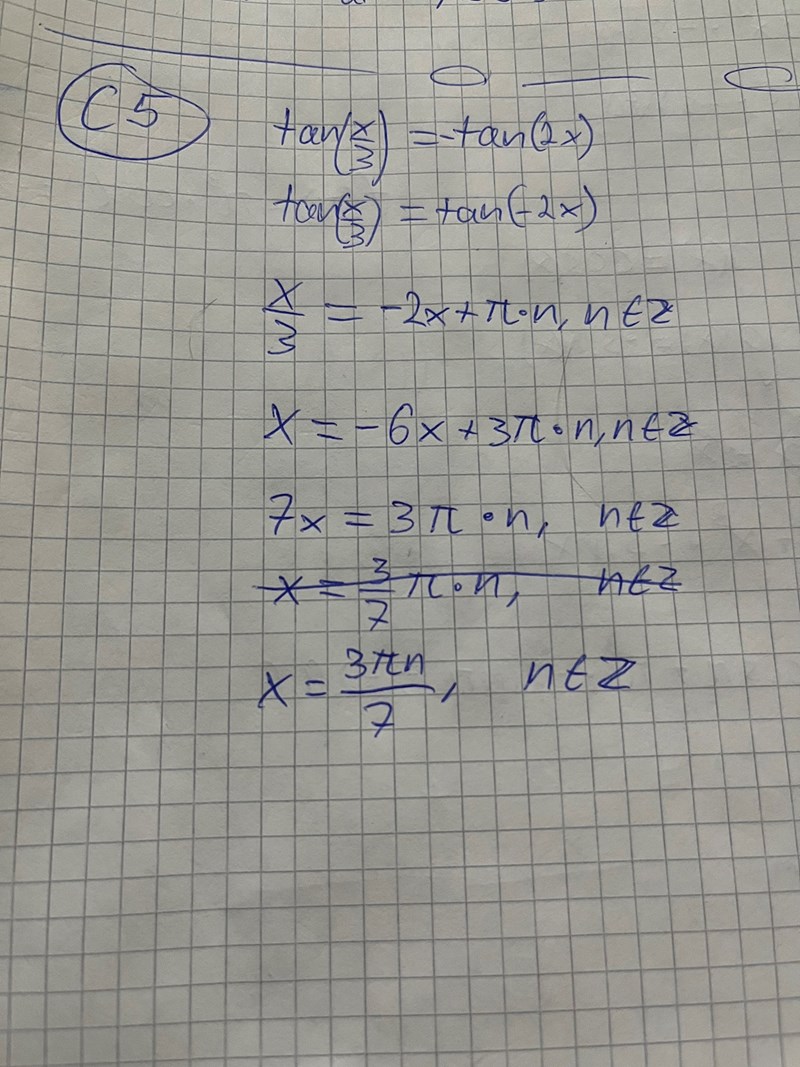 C5
tan(x/3) = -tan(2x)
tan(x/3) = tan(-2x)
x/3 = -2x + π·n, n∈Z
x = -6x + 3π·n, n∈Z
7x = 3π·n, n∈Z
x = 3/7 π·n, n∈Z
x = 3πn/7, n∈Z